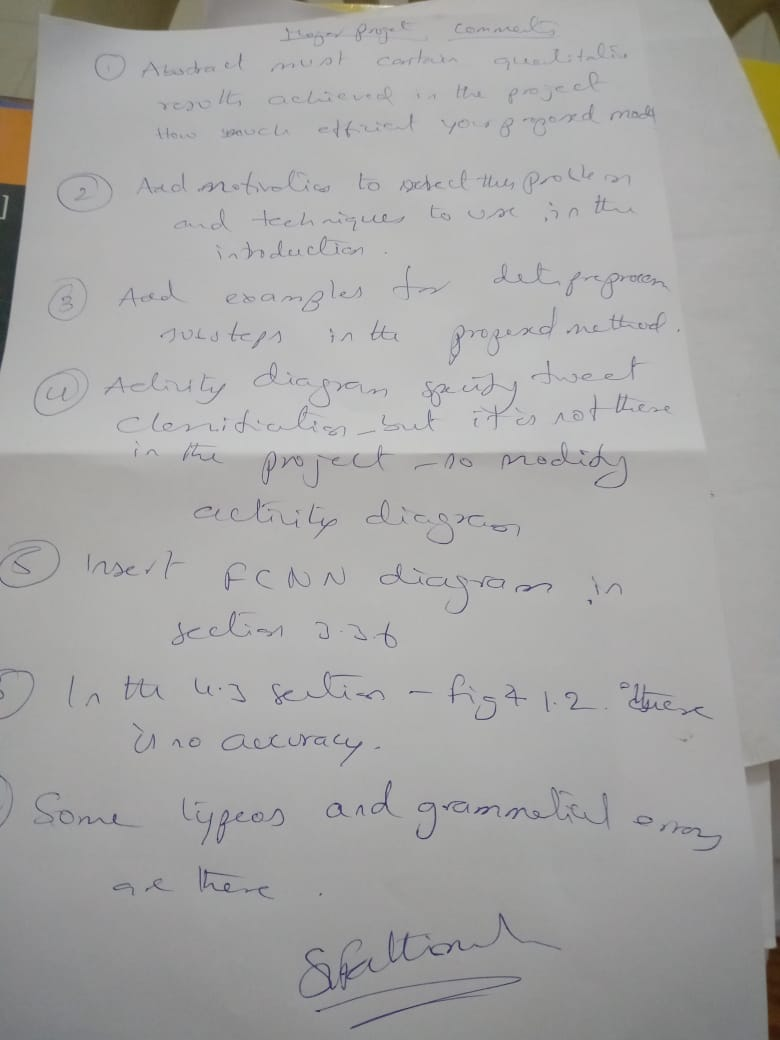 Major Project Comments
① Abstract must contain qualitative
results achieved in the project
How much efficient your proposed model
② Add motivation to select this problem
and techniques to use in the
introduction.
③ Add examples for data preprocess
substeps in the proposed method.
④ Activity diagram specify tweet
classification - but it is not there
in the project - so modify
activity diagram
⑤ Insert FCNN diagram in
section 3.3.6
In the 4.3 section - fig 7 1.2. there
is no accuracy.
Some typeos and grammatical errors
are there.